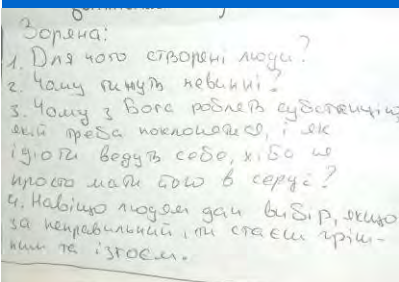 Зоряна:
1. Для чого створені люди?
2. Чому гинуть невинні?
3. Чому з Бога роблять субстанцію,
якій треба поклонятися, і як
ідіоти ведуть себе, хіба не
просто мати його в серці?
4. Навіщо людям дали вибір, якщо
за неправильний, ти стаєш гріш-
ним та ізгоєм.